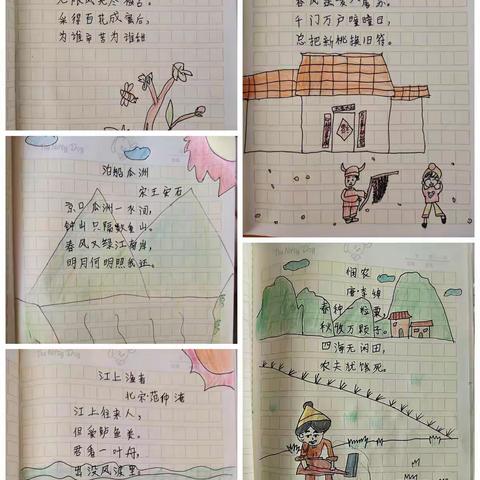 无限风光尽被占。
采得百花成蜜后，
为谁辛苦为谁甜
春风送暖入屠苏。
千门万户曈曈日，
总把新桃换旧符。
The Nerdy Dog
泊船瓜洲
宋王安石
京口瓜洲一水间，
钟山只隔数重山。
春风又绿江南岸，
明月何时照我还。
The Nerdy Dog
悯农
唐·李绅
春种一粒粟，
秋收万颗子。
四海无闲田，
农夫犹饿死。
The Nerdy Dog
江上渔者
北宋·范仲淹
江上往来人，
但爱鲈鱼美。
君看一叶舟，
出没风波里。